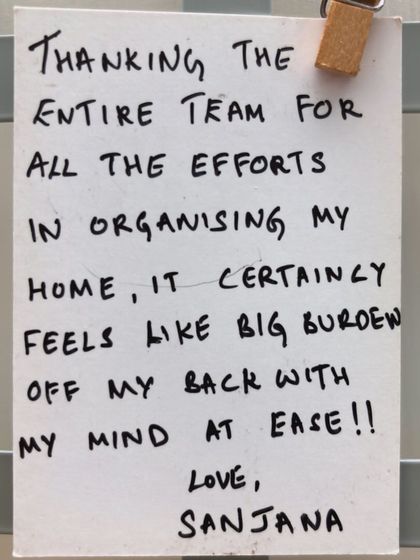 THANKING THE
ENTIRE TEAM FOR
ALL THE EFFORTS
IN ORGANISING MY
HOME, IT CERTAINLY
FEELS LIKE BIG BURDEN
OFF MY BACK WITH
MY MIND AT EASE!!
LOVE,
SANJANA